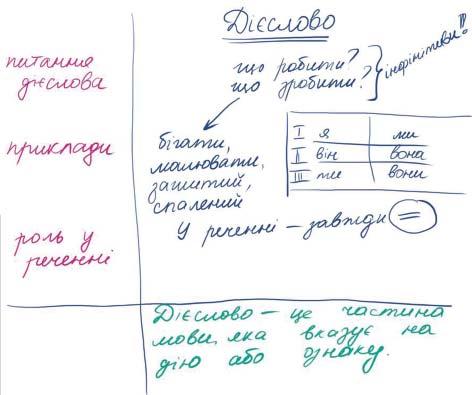 Дієслово
питання
дієслова
що робити?
що зробити?
інфінітиви!!
приклади
бігати,
малювати,
зашитий,
спалений
I я ми
II він вона
III ти вони
роль у
реченні
У реченні – завжди =
Дієслово – це частина
мови, яка вказує на
дію або ознаку.